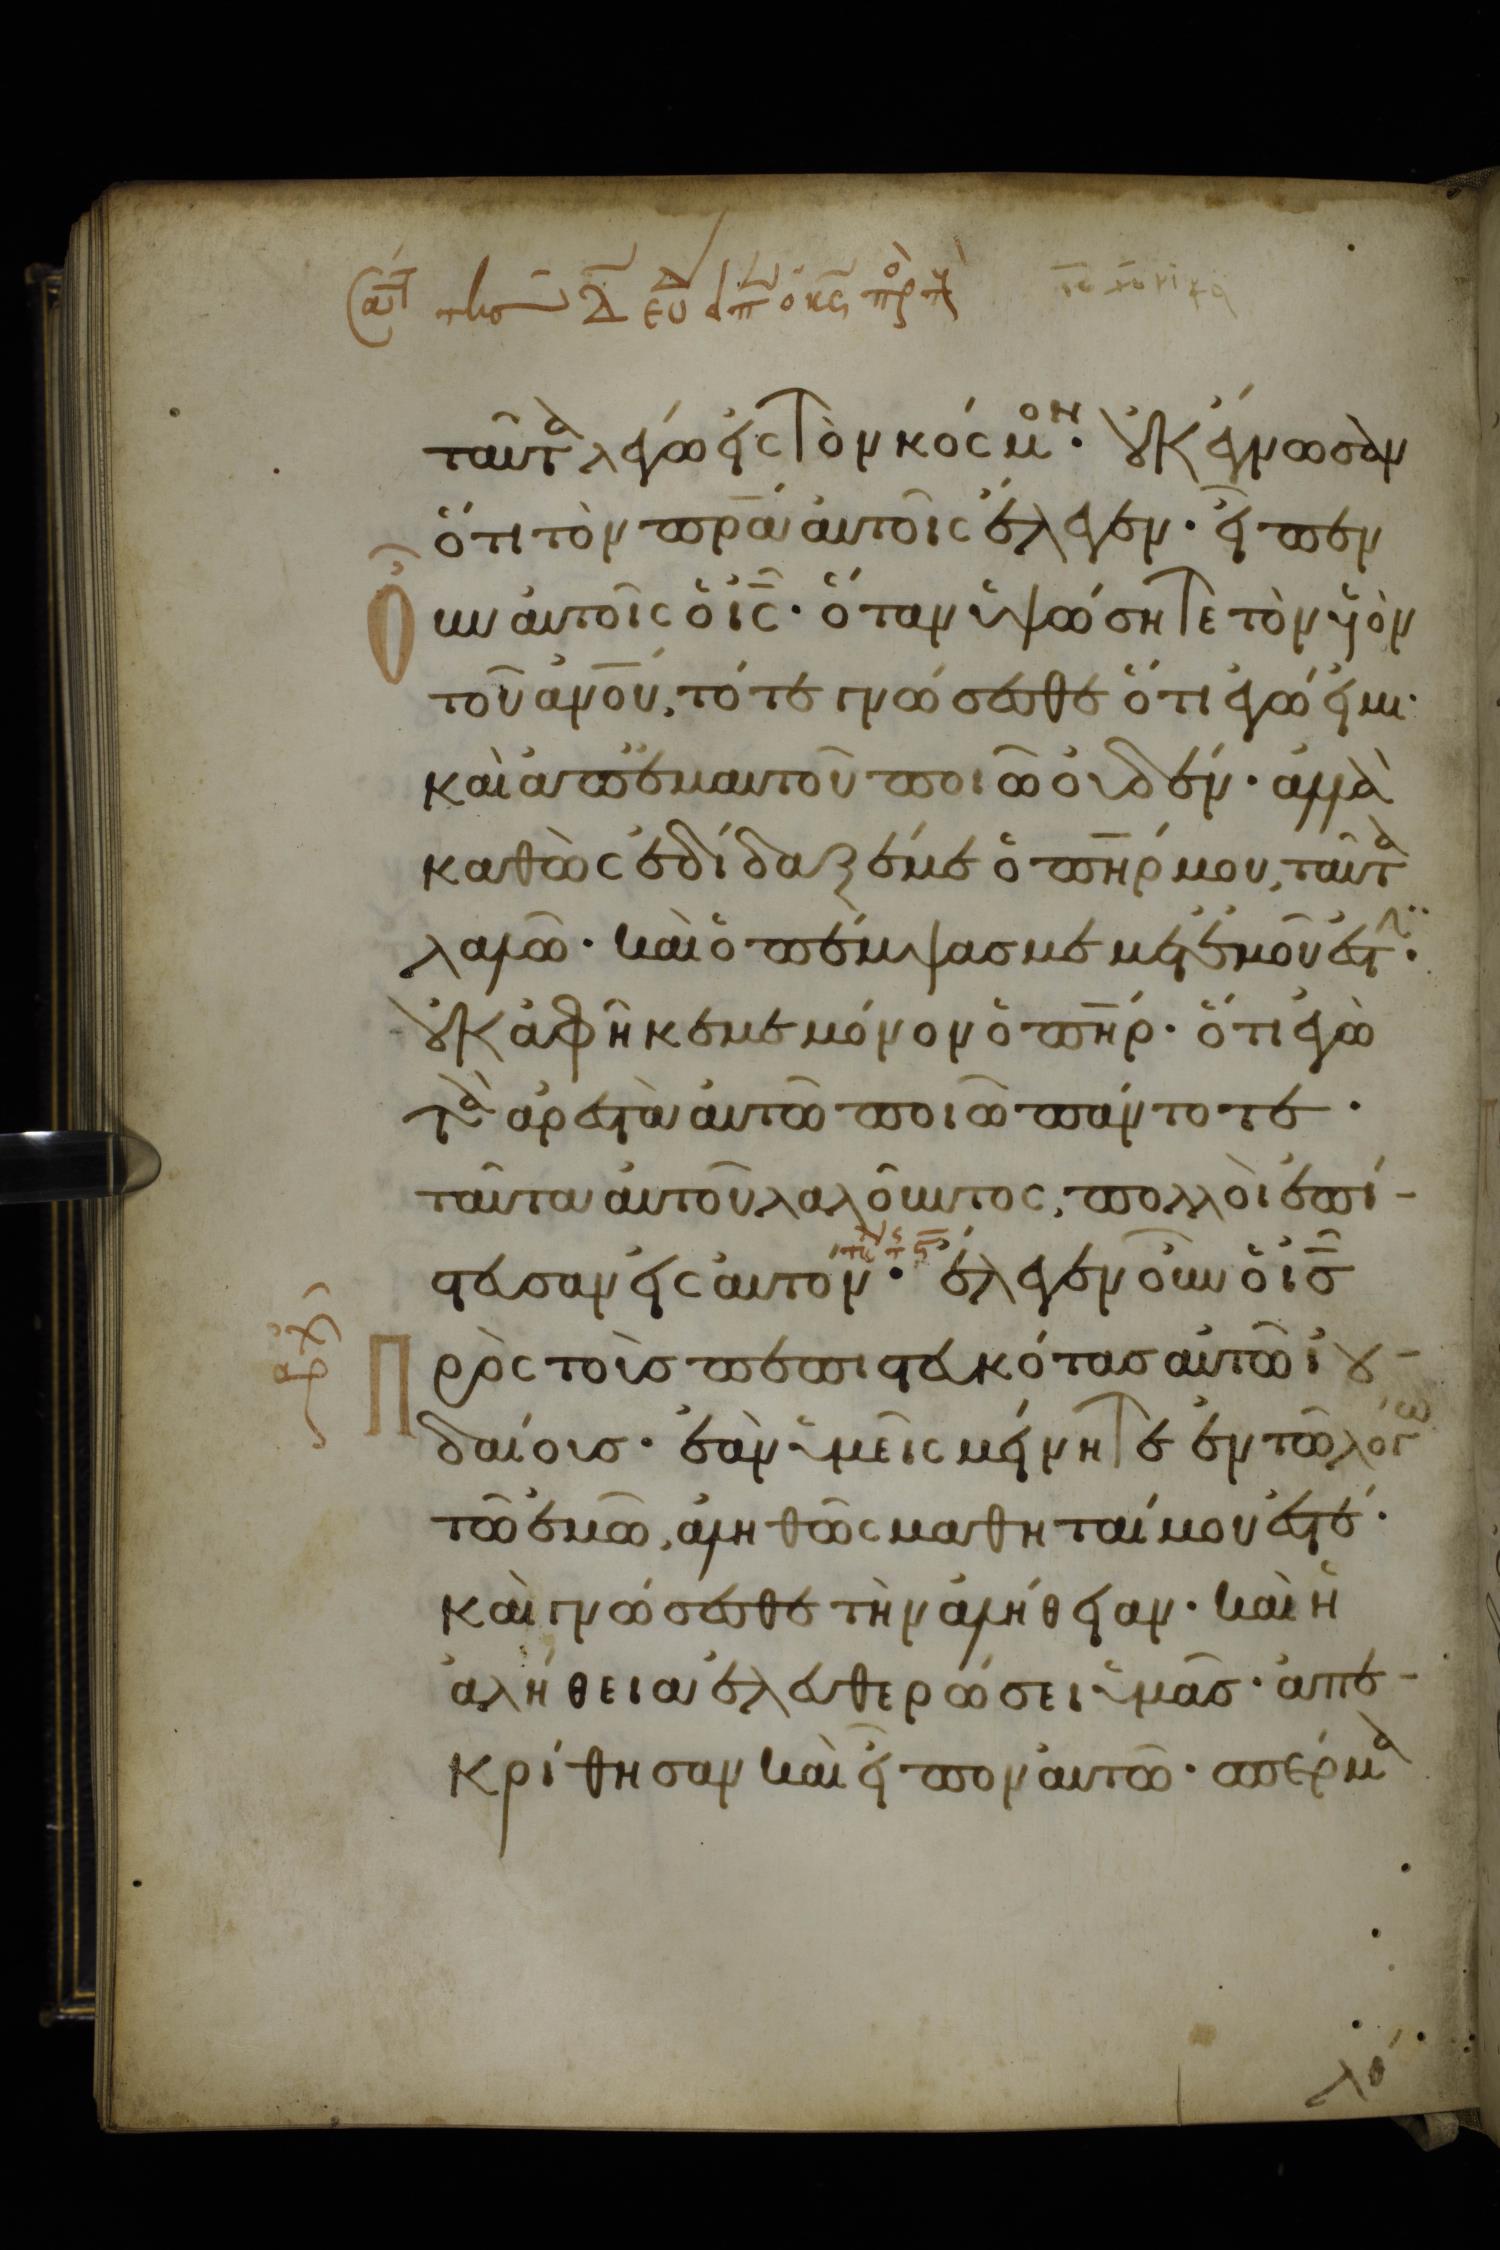 ταῦτα λέγω εἰς τὸν κόσμον· οὐκ ἔγνωσαν
ὅτι τὸν πρ̅α αὐτοῖς ἔλεγεν· εἶπεν
Οὖν αὐτοῖς ὁ ι̅ς· ὅταν ὑψώσητε τὸν υἱὸν
τοῦ ἀν̅ου, τότε γνώσεσθε ὅτι ἐγώ εἰμι·
καὶ ἀπ' ἐμαυτοῦ ποιῶ οὐδέν· ἀλλὰ
καθὼς ἐδίδαξέ με ὁ π̅ηρ μου, ταῦτα
λαλῶ· καὶ ὁ πέμψας με μετ' ἐμοῦ ἐστιν·
οὐκ ἀφῆκε με μόνον ὁ π̅ηρ· ὅτι ἐγὼ
τὰ ἀρεστὰ αὐτῶ ποιῶ πάντοτε·
ταῦτα αὐτοῦ λαλοῦντος, πολλοὶ ἐπί-
στευσαν εἰς αὐτον· ἔλεγεν οὖν ὁ ι̅σ
Πρὸς τοὺσ πεπιστευκότασ αὐτῶ ἰου-
δαίουσ· ἐὰν ὑμεῖς μείνητε ἐν τῶ λόγω
τῶ ἐμῶ, ἀληθῶς μαθηταί μου ἐστέ·
καὶ γνώσεσθε τὴν ἀλήθειαν· καὶ ἡ
ἀλήθεια ἐλευθερώσει ὑμᾶσ· ἀπε-
κρίθησαν καὶ εἶπον αὐτῶ· σπέρμα
λθ